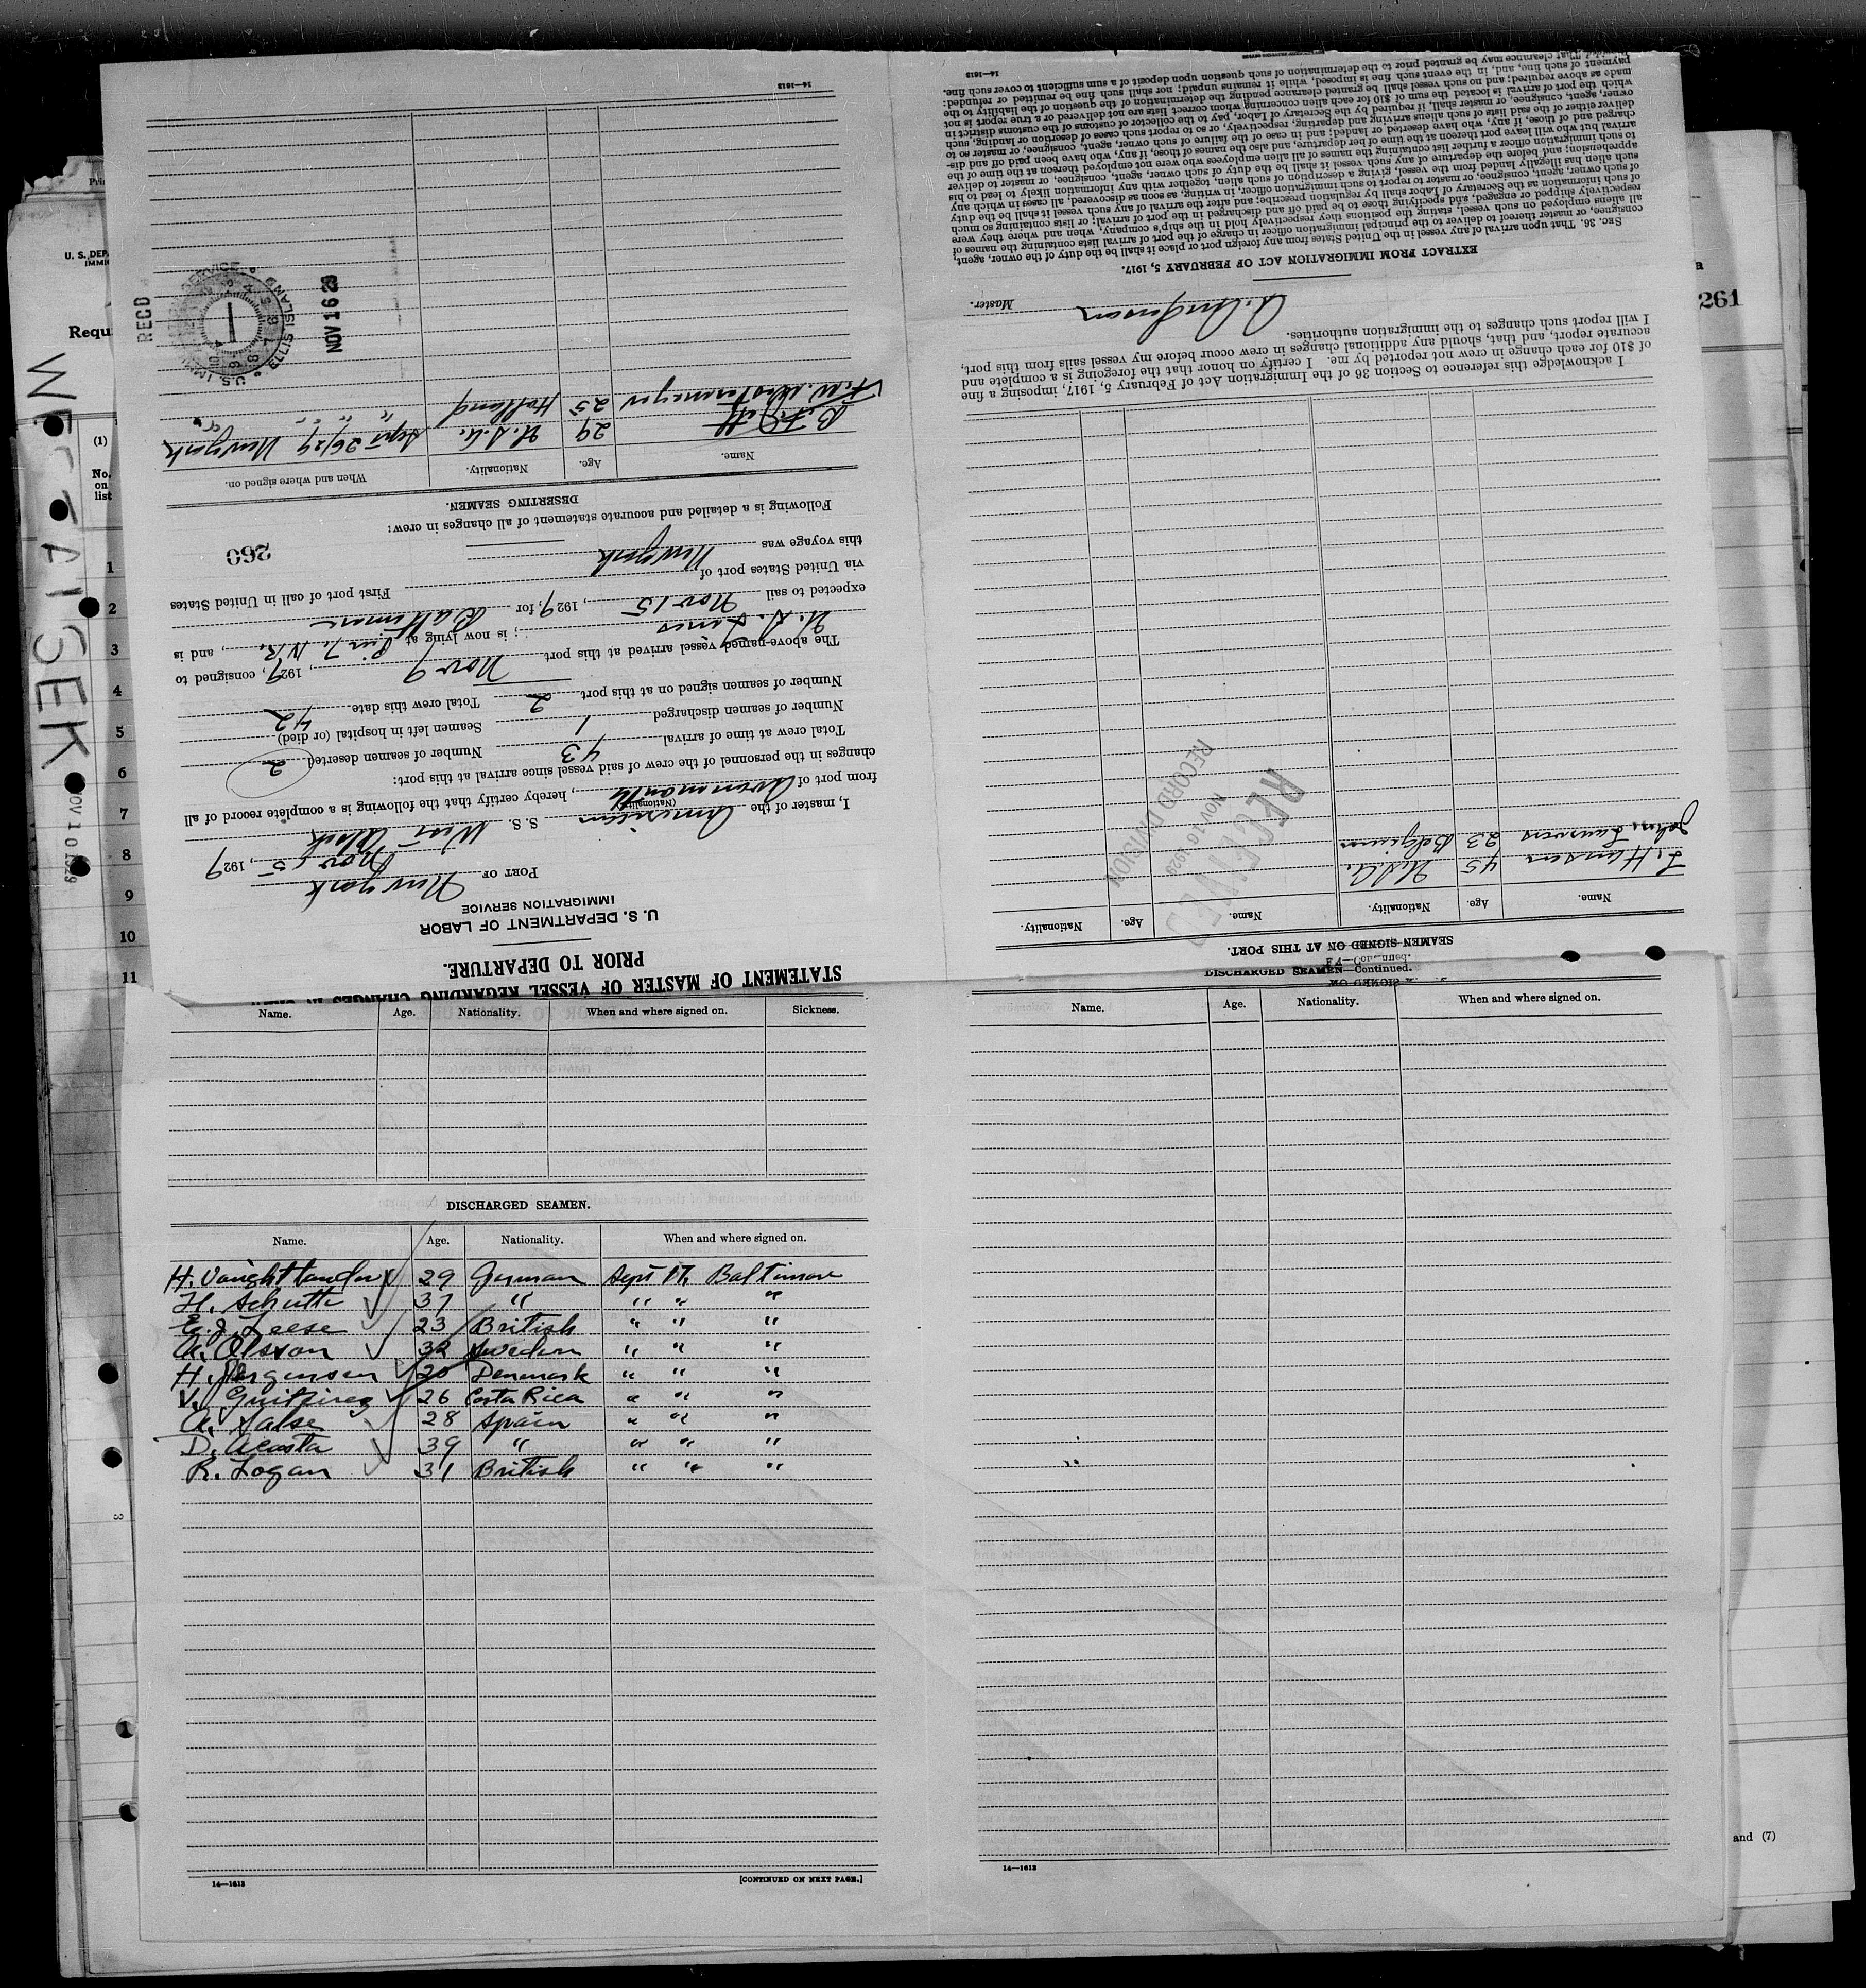 STATEMENT OF MASTER OF VESSEL REGARDING CHANGES
PRIOR TO DEPARTURE.
U. S. DEPARTMENT OF LABOR
IMMIGRATION SERVICE
PORT OF New York
Nov 15, 1929
I, master of the American S. S. West
(Nationality)
from port of Avonmouth, hereby certify that the following is a complete record of all
changes in the personnel of the crew of said vessel since arrival at this port:
Total crew at time of arrival 43 Number of seamen deserted 2
Number of seamen discharged 1 Seamen left in hospital (or died)
Number of seamen signed on at this port 2 Total crew this date 42
The above-named vessel arrived at this port Nov 9, 1929, consigned to
U. S. Lines; is now lying at Pier 7, N.R., and is
expected to sail Nov 15, 1929, for Baltimore First port of call in United States
via United States port of
this voyage was New York
260
Following is a detailed and accurate statement of all changes in crew:
DESERTING SEAMEN.
Name. Age. Nationality. When and where signed on.
29 U.S.A. Sept 26/29 New York
F. W. 25 Holland " " "
RECD
NOV 16 29
U.S. IMM SERVICE ELLIS ISLAND
14—1613
SEAMEN SIGNED ON AT THIS PORT.
Name. Age. Nationality. Name. Age. Nationality.
L. Hansen 45 U.S.A.
John 23 Belgium
RECEIVED
NOV 16 1929
RECORD DIVISION
I acknowledge this reference to Section 36 of the Immigration Act of February 5, 1917, imposing a fine
of $10 for each change in crew not reported by me. I certify on honor that the foregoing is a complete and
accurate report, and that, should any additional changes in crew occur before my vessel sails from this port,
I will report such changes to the immigration authorities.
A. Anderson Master.
EXTRACT FROM IMMIGRATION ACT OF FEBRUARY 5, 1917.
SEC. 36. That upon arrival of any vessel in the United States from any foreign port or place it shall be the duty of the owner, agent,
consignee, or master thereof to deliver to the principal immigration officer in charge of the port of arrival lists containing the names of
all aliens employed on such vessel, stating the positions they respectively hold in the ship's company, when and where they were
respectively shipped or engaged, and specifying those to be paid off and discharged in the port of arrival; or lists containing so much
of such information as the Secretary of Labor shall by regulation prescribe; and after the arrival of any such vessel it shall be the duty
of such owner, agent, consignee, or master to report to such immigration officer, in writing, as soon as discovered, all cases in which any
such alien has illegally landed from the vessel, giving a description of such alien, together with any information likely to lead to his
apprehension; and before the departure of any such vessel it shall be the duty of such owner, agent, consignee, or master to deliver
to such immigration officer a further list containing the names of all alien employees who were not employed thereon at the time of the
arrival but who will leave port thereon at the time of her departure, and also the names of those, if any, who have been paid off and dis-
charged and of those, if any, who have deserted or landed; and in case of the failure of such owner, agent, consignee, or master so to
deliver either of the said lists of such aliens arriving and departing, respectively, or so to report such cases of desertion or landing, such
owner, agent, consignee, or master shall, if required by the Secretary of Labor, pay to the collector of customs of the customs district in
which the port of arrival is located the sum of $10 for each alien concerning whom correct lists are not delivered or a true report is not
made as above required; and no such vessel shall be granted clearance pending the determination of the question of the liability to the
payment of such fine, and, in the event such fine is imposed, while it remains unpaid; nor shall such fine be remitted or refunded:
That clearance may be granted prior to the determination of such question upon deposit of a sum sufficient to cover such fine.
14—1613
Name. Age. Nationality. When and where signed on. Sickness.
DISCHARGED SEAMEN.
Name. Age. Nationality. When and where signed on.
H. 29 German Sept 17, Baltimore
H. Schutte 37 " " " "
E. J. Leese 23 British " " "
A. Olsson 32 Sweden " " "
H. Jorgensen 20 Denmark " " "
V. Guitirez 26 Costa Rica " " "
A. Salse 28 Spain " " "
D. Acosta 39 " " " "
R. Logan 31 British " " "
14—1613
[CONTINUED ON NEXT PAGE.]
DISCHARGED SEAMEN—Continued.
Name. Age. Nationality. When and where signed on.
14—1613
U. S. DEP
IMMI
Requ
(1)
No.
on
list
1
2
3
4
5
6
7
8
9
10
11
NOV 10 1929
261
and (7)